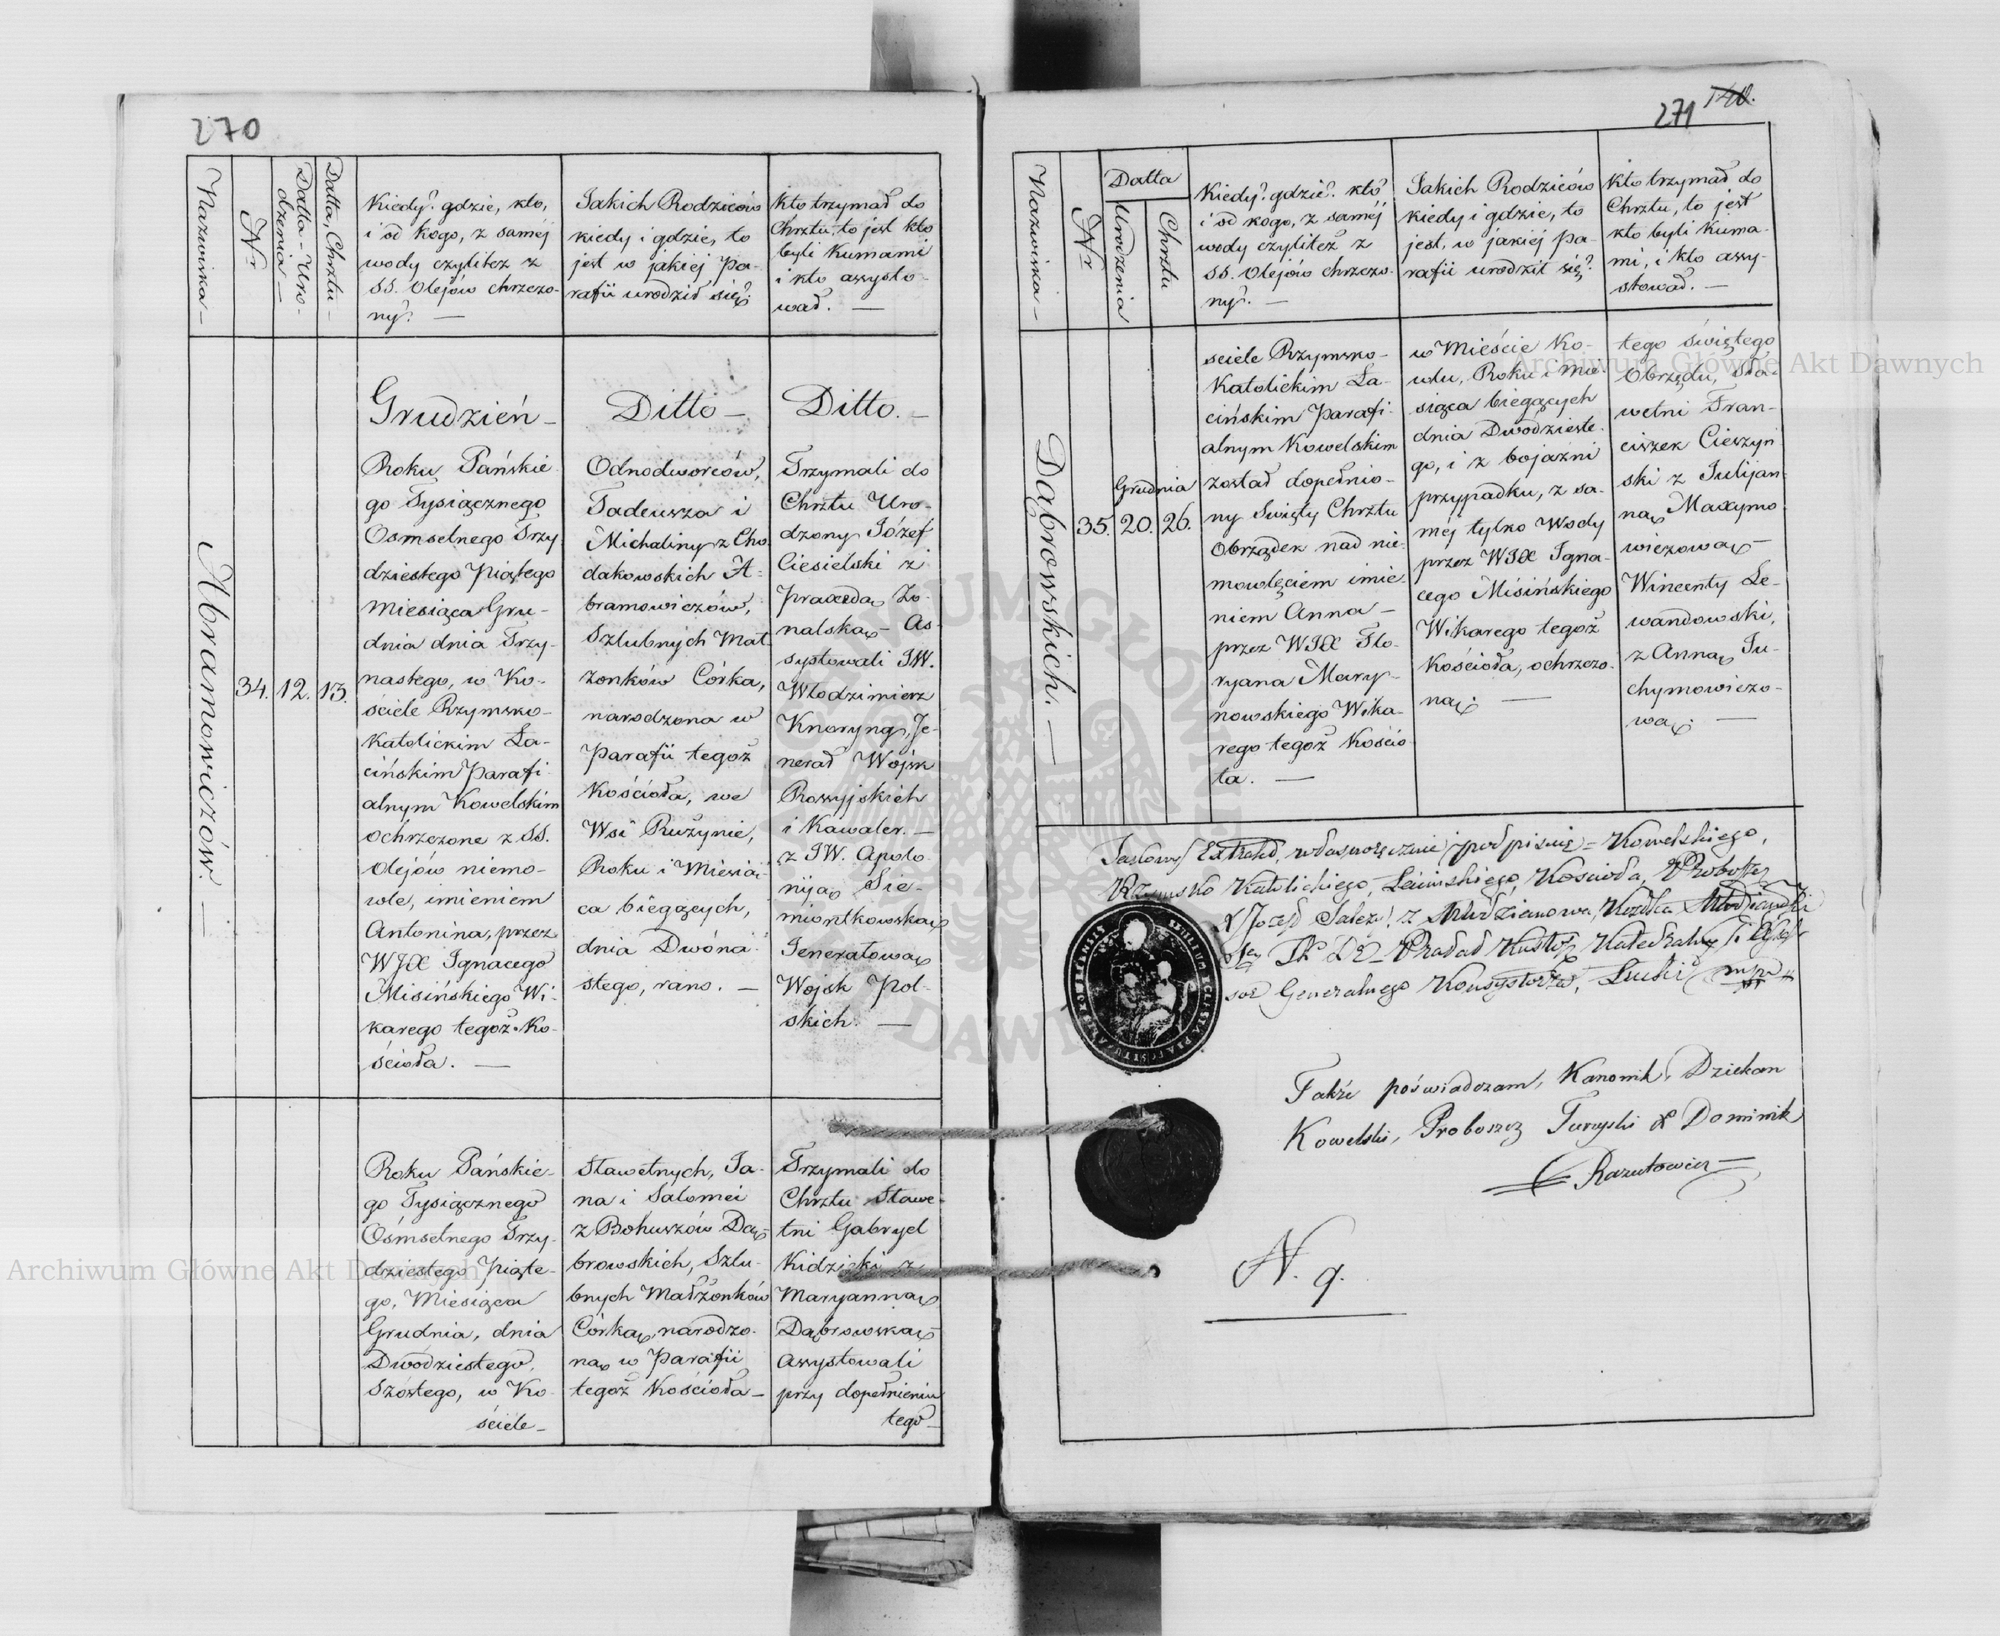 270
Nazwiska —
Nr
Datta - Uro-
dzenia —
Datta, Chrztu —
Kiedy? gdzie, kto,
i od kogo, z saméj
wody czyliteż z
SS. Olejów chrzczo-
ny? —
Jakich Rodziców
kiedy i gdzie, to
jest w jakiéj Pa-
rafii urodził się?
Kto trzymał do
Chrztu, to jest kto
byli Kumami
i kto assysto-
wał. —
Abramowiczów. —
34.
12.
13.
Grudzień —
Roku Pańskie-
go Tysiącznego
Osmsetnego Trzy-
dziestego Piątego
Miesiąca Gru-
dnia dnia Trzy-
nastego, w Ko-
ściele Rzymsko-
Katolickim Ła-
cińskim Parafi-
alnym Kowelskim
ochrzczone z SS.
Olejów niemo-
wle, imieniem
Antonina, przez
WJX Ignacego
Misińskiego Wi-
karego tegoż Ko-
ścioła. —
Ditto —
Odnodworców,
Tadeusza i
Michaliny z Cho-
dakowskich A-
bramowiczów,
Szlubnych Mał-
żonków Córka,
narodzona w
Parafii tegoż
Kościoła, we
Wsi Rużynie,
Roku i Miesią-
ca biegących,
dnia Dwóna-
stego, rano. —
Ditto. —
Trzymali do
Chrztu Uro-
dzony Józef
Ciesielski z
Praxedą Zo-
nalską — As-
systowali JW.
Włodzimierz
Knoryng, Je-
nerał Wojsk
Rossyjskich
i Kawaler. —
z JW. Apolo-
niją Sie-
miontkowską
Jenerałową
Wojsk Pol-
skich. —
Roku Pańskie-
go Tysiącznego
Ośmsetnego Trzy-
dziestego Piąte-
go, Miesiąca
Grudnia, dnia
Dwódziestego
Szóstego, w Ko-
ściele —
Sławetnych, Ja-
na i Salomei
z Bohuszów Dą-
browskich, Szlu-
bnych Małżonków
Córką, narodzo-
ną w Parafii
tegoż Kościoła —
Trzymali do
Chrztu Sławe-
tni Gabryel
Kidzicki z
Maryanną
Dąbrowską —
Assystowali
przy dopełnieniu
tego —
271
Nazwiska —
Nr
Datta
Urodzenia
Chrztu
Kiedy? gdzie? kto?
i od kogo, z saméj
wody czyliteż z
SS. Olejów chrzczo-
ny? —
Jakich Rodziców
kiedy i gdzie, to
jest, w jakiéj Pa-
rafii urodził się?
Kto trzymał do
Chrztu, to jest
kto byli Kuma-
mi, i kto assy-
stował. —
Dąbrowskich. —
35.
Grudnia
20.
26.
sciele Rzymsko-
Katolickim Ła-
cińskim Parafi-
alnym Kowelskim
został dopełnio-
ny Swięty Chrztu
Obrządek nad nie-
mowlęciem imie-
niem Anna —
przez WJX Flo-
ryana Mary-
nowskiego Wika-
rego tegoż Kościo-
ła. —
w Mieście Ko-
wlu, Roku i Mie-
siąca biegących
dnia Dwódzieste-
go, i z bojazni
przypadku, z sa-
méj tylko Wody
przez WJX Igna-
cego Misińskiego
Wikarego tegoż
Kościoła, ochrzczo-
ną. —
tego świętego
Obrzędu, Sła-
wetni Fran-
ciszek Cieszyń-
ski z Julijan-
ną Maxymo-
wiczową —
Wincenty Le-
wandowski,
z Anną Ju-
chymowiczo-
wą. —
Extrakt, własnoręcznie podpisuję = Kowelskiego,
Rzymsko Katolickiego, Kościoła, Proboszcz
X Józef
Prałat Kustosz Katedralny
Generalnego Konsystorza,
Także poświadczam, Kanonik, Dziekan
Kowelski, Proboszcz Turyski X Dominik
Razutowicz —
N. 9.
Archiwum Główne Akt Dawnych
Archiwum Główne Akt Dawnych